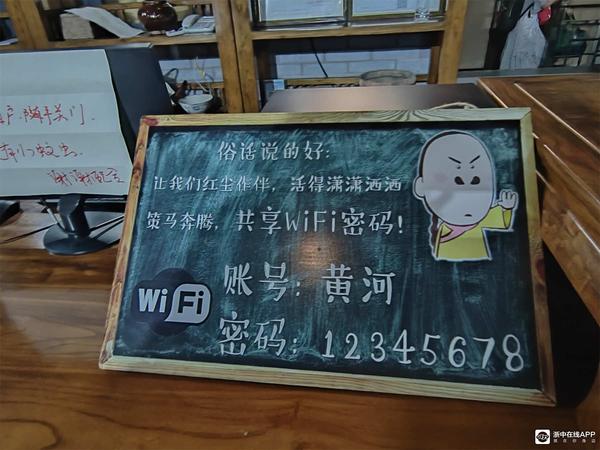 随手关门.
谢谢配合
俗话说的好:
让我们红尘作伴，活得潇潇洒洒
策马奔腾，共享WiFi密码！
WiFi
账号：黄河
密码：12345678
浙中在线APP